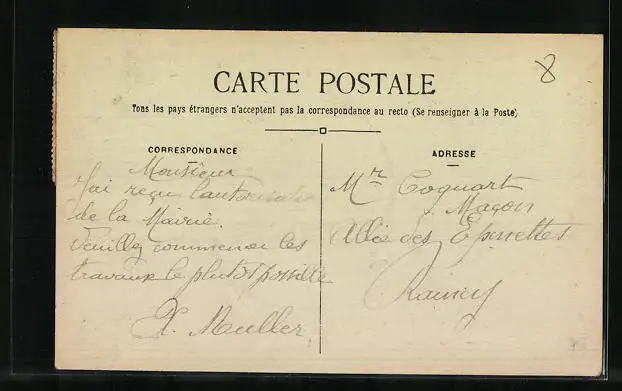 8
CARTE POSTALE
Tous les pays étrangers n'acceptent pas la correspondance au recto (Se renseigner à la Poste)
CORRESPONDANCE
Monsieur
J'ai reçu l'autorisation
de la Mairie.
Veuillez commencer les
travaux le plutot possible
X. Muller
ADRESSE
Mr Coquart
Maçon
Allée des Epinettes
Raincy